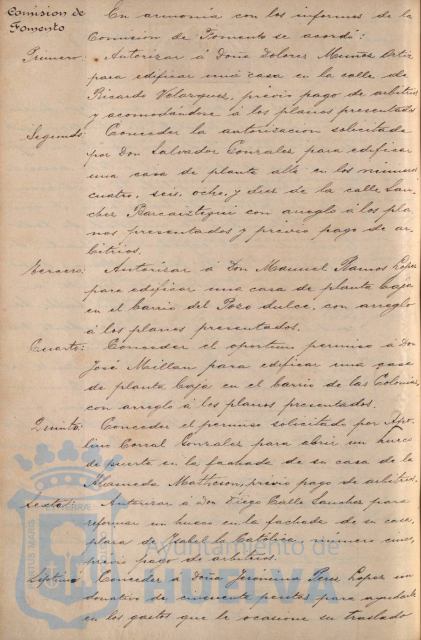 Comision de
Fomento
En armonía con los informes de la
Comision de Fomento se acordó:
Primero: Autorizar á Doña Dolores Muñoz Ortiz
para edificar una casa en la calle de
Ricardo Velazquez, previo pago de arbitrios
y acomodándose á los planos presentados
Segundo: Conceder la autorizacion solicitada
por Don Salvador Gonzalez para edificar
una casa de planta alta en los números
cuatro, seis, ocho, y diez de la calle San-
chez Barcaiztegui con arreglo á los pla-
nos presentados y previo pago de ar-
bitrios.
Tercero: Autorizar á Don Manuel Ramos Lopez
para edificar una casa de planta baja
en el barrio del Pozo dulce, con arreglo
á los planos presentados.
Cuarto: Conceder el oportuno permiso á Don
José Maillan para edificar una casa
de planta baja en el barrio de las Colonias
con arreglo á los planos presentados.
Quinto: Conceder el permiso solicitado por Apo-
lino Corral Gonzalez para abrir un hueco
de puerta en la fachada de su casa de la
Alameda Mattheson, previo pago de arbitrios.
Sexto: Autorizar á Don Diego Calle Sanchez para
reformar un hueco en la fachada de su casa,
plaza de Ysabel la Católica, número cinco,
previo pago de arbitrios.
Séptimo: Conceder á Doña Jerónima Perez Lopez un
donativo de cincuenta pesetas para ayudarle
en los gastos que le ocasione su traslado
Ayuntamiento de
HUELVA